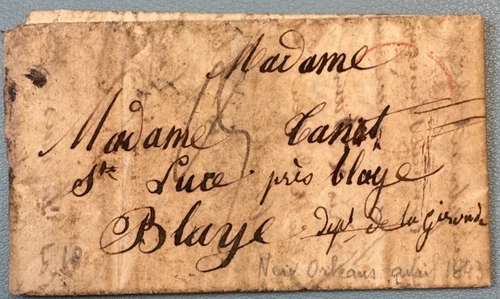 Madame
Madame Canot
Ste Luce près blaye
Blaye Dept de la Gironde
New Orleans avril 1843